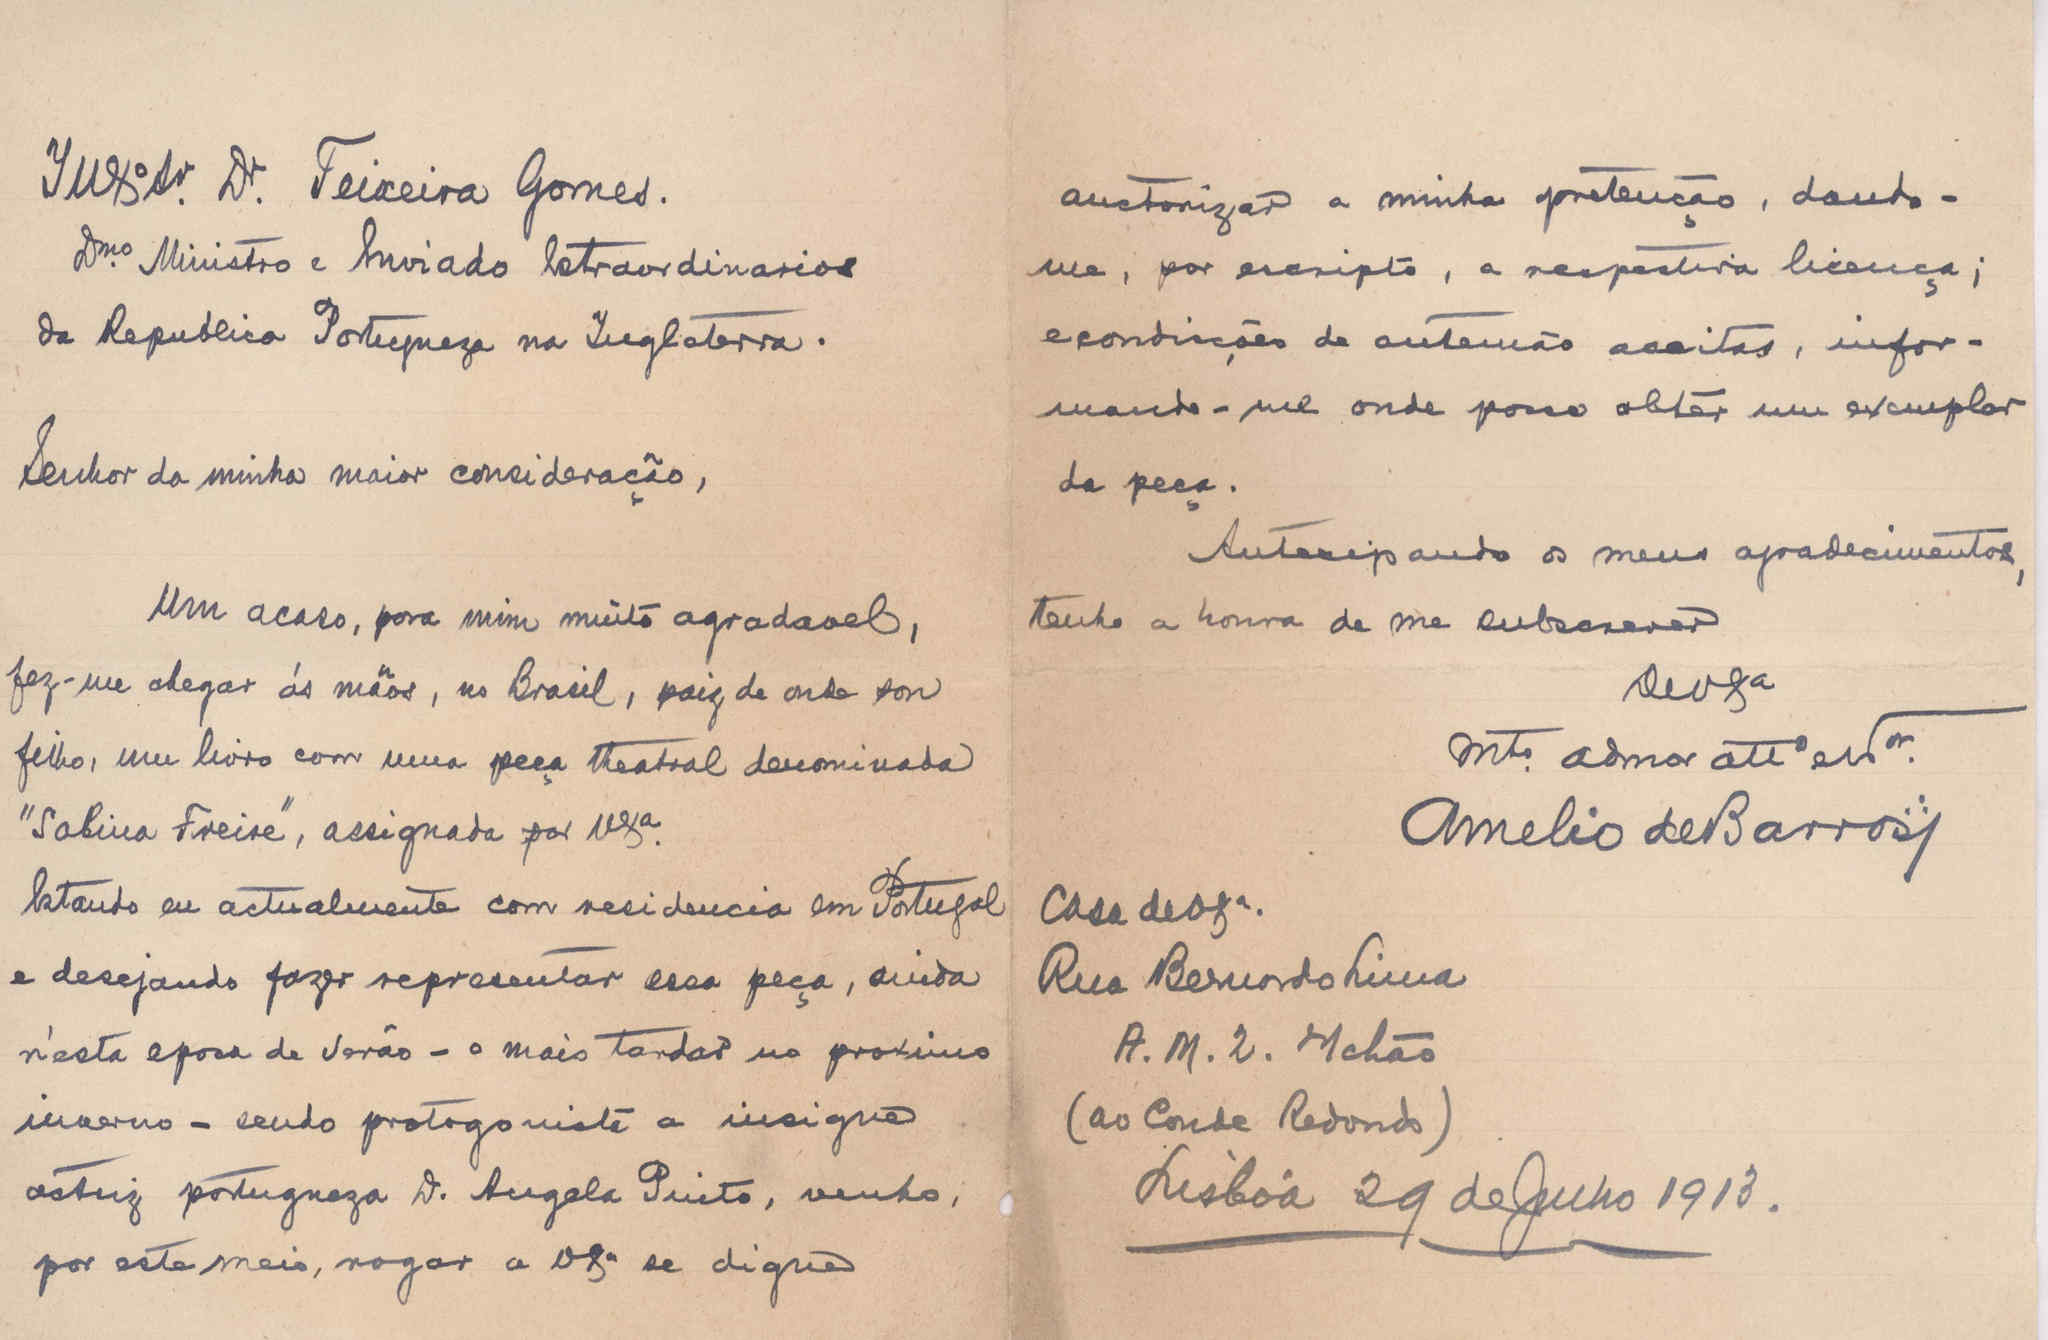 Illº Exº Sr. Dr. Teixeira Gomes.
Dmo. Ministro e Enviado Extraordinarios
da Republica Portugueza na Inglaterra.
Senhor da minha maior consideração,
Um acaso, para mim muito agradavel,
fez-me chegar ás mãos, no Brasil, paiz de onde sou
filho, um livro com uma peça theatral denominada
"Sabina Freire", assignada por V Exª.
Estando eu actualmente com residencia em Portugal
e desejando fazer representar essa peça, ainda
n'esta epoca de Verão - o mais tardar no proximo
inverno - sendo protogonista a insigne
actriz portugueza D. Angela Pinto, venho,
por este meio, rogar a V Exª se digne
auctorizar a minha pretenção, dando-
me, por escripto, a respectiva licença;
e condicções de antemão aceitas, infor-
mando-me onde posso obter um exemplar
da peça.
Antecipando os meus agradecimentos,
tenho a honra de me subscrever
De V Exª
Mto. admor attº e Vor.
Amelio de Barros
Casa de V Exª.
Rua Bernardo Lima
A. M. 2. chão
(ao Conde Redondo)
Lisbôa 29 de Julho 1913.